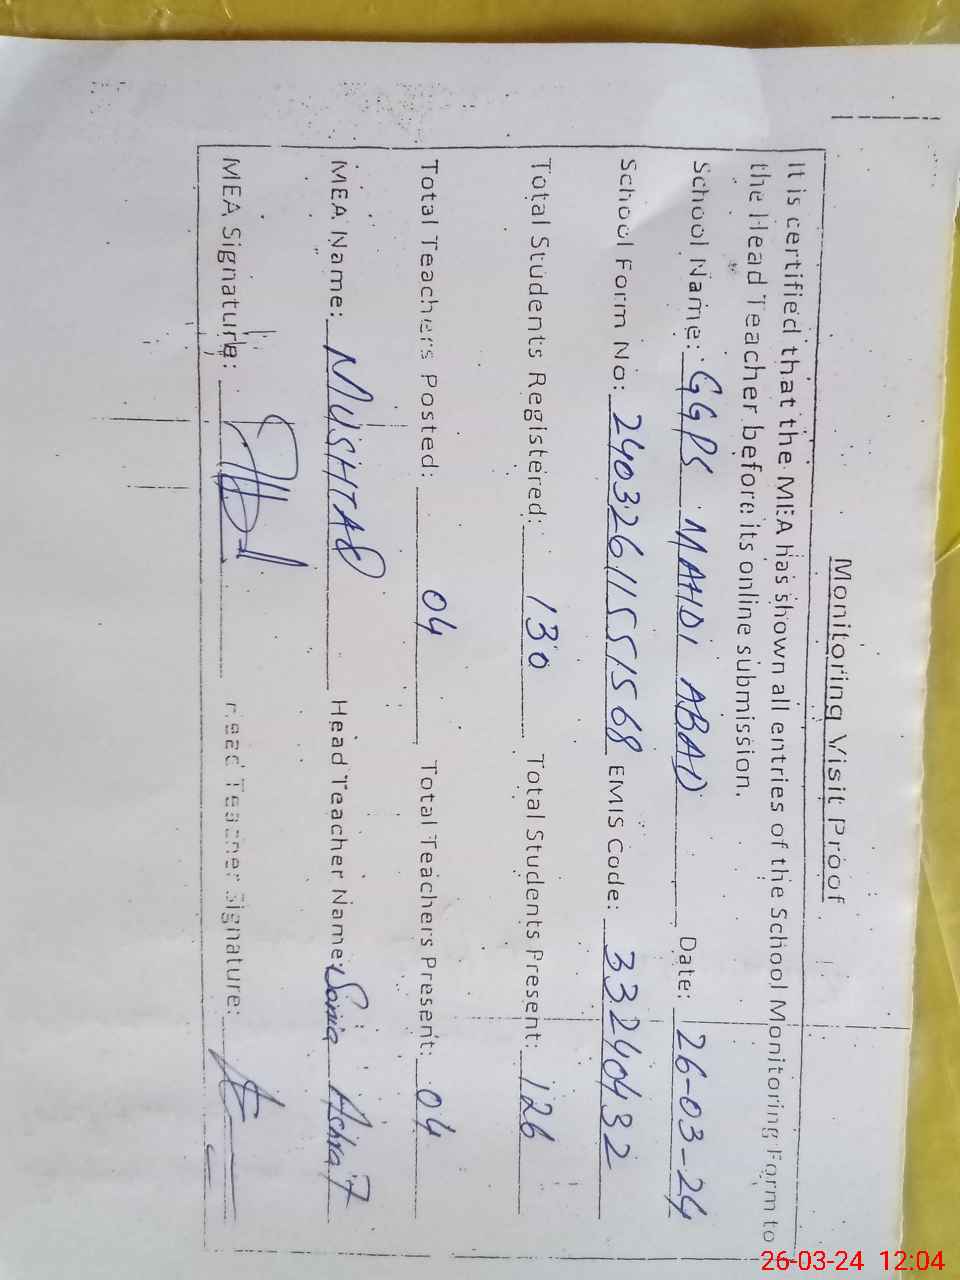 Monitoring Visit Proof
It is certified that the MEA has shown all entries of the School Monitoring Form to
the Head Teacher before its online submission.
School Name: GGPS MAHDI ABAD Date: 26-03-24
School Form No: 24032611551568 EMIS Code: 33240432
Total Students Registered: 130 Total Students Present: 126
Total Teachers Posted: 04 Total Teachers Present: 04
MEA Name: MUSHTAQ Head Teacher Name: Sonia Ashraf
MEA Signature: Head Teacher Signature:
26-03-24 12:04